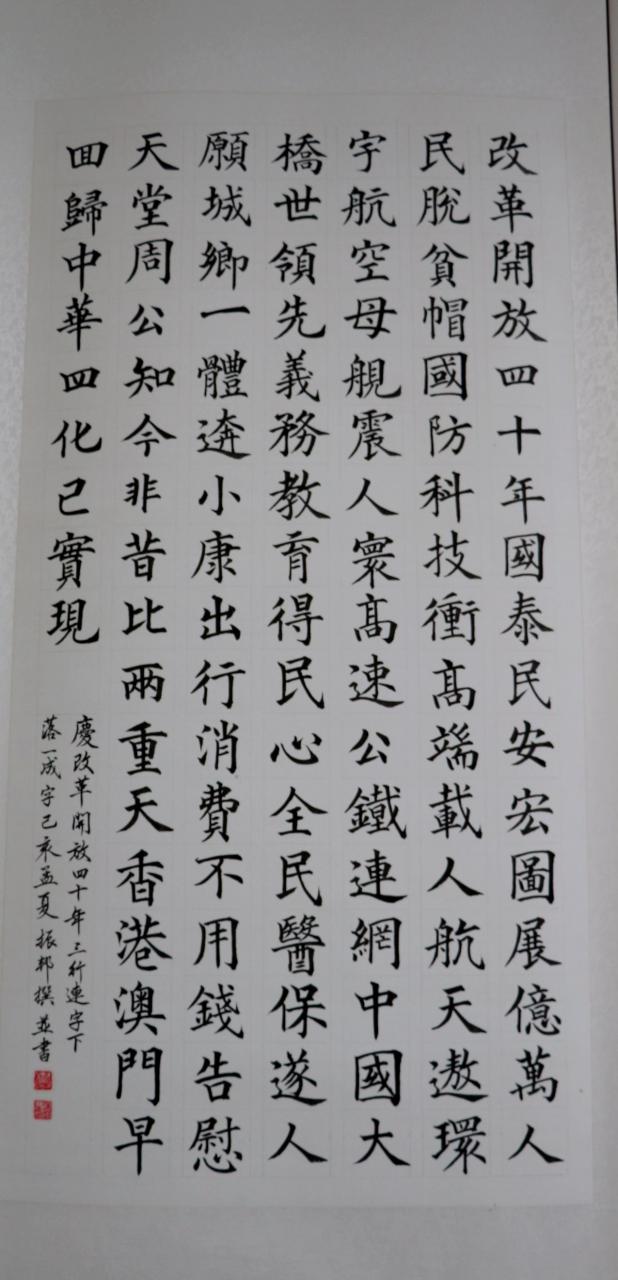 改革開放四十年國泰民安宏圖展億萬人
民脫貧帽國防科技衝高端載人航天遨環
宇航空母艦震人寰高速公鐵連網中國大
橋世領先義務教育得民心全民醫保遂人
願城鄉一體逩小康出行消費不用錢告慰
天堂周公知今非昔比兩重天香港澳門早
回歸中華四化已實現
慶改革開放四十年三行連字下
落一成字己亥孟夏振邦撰並書